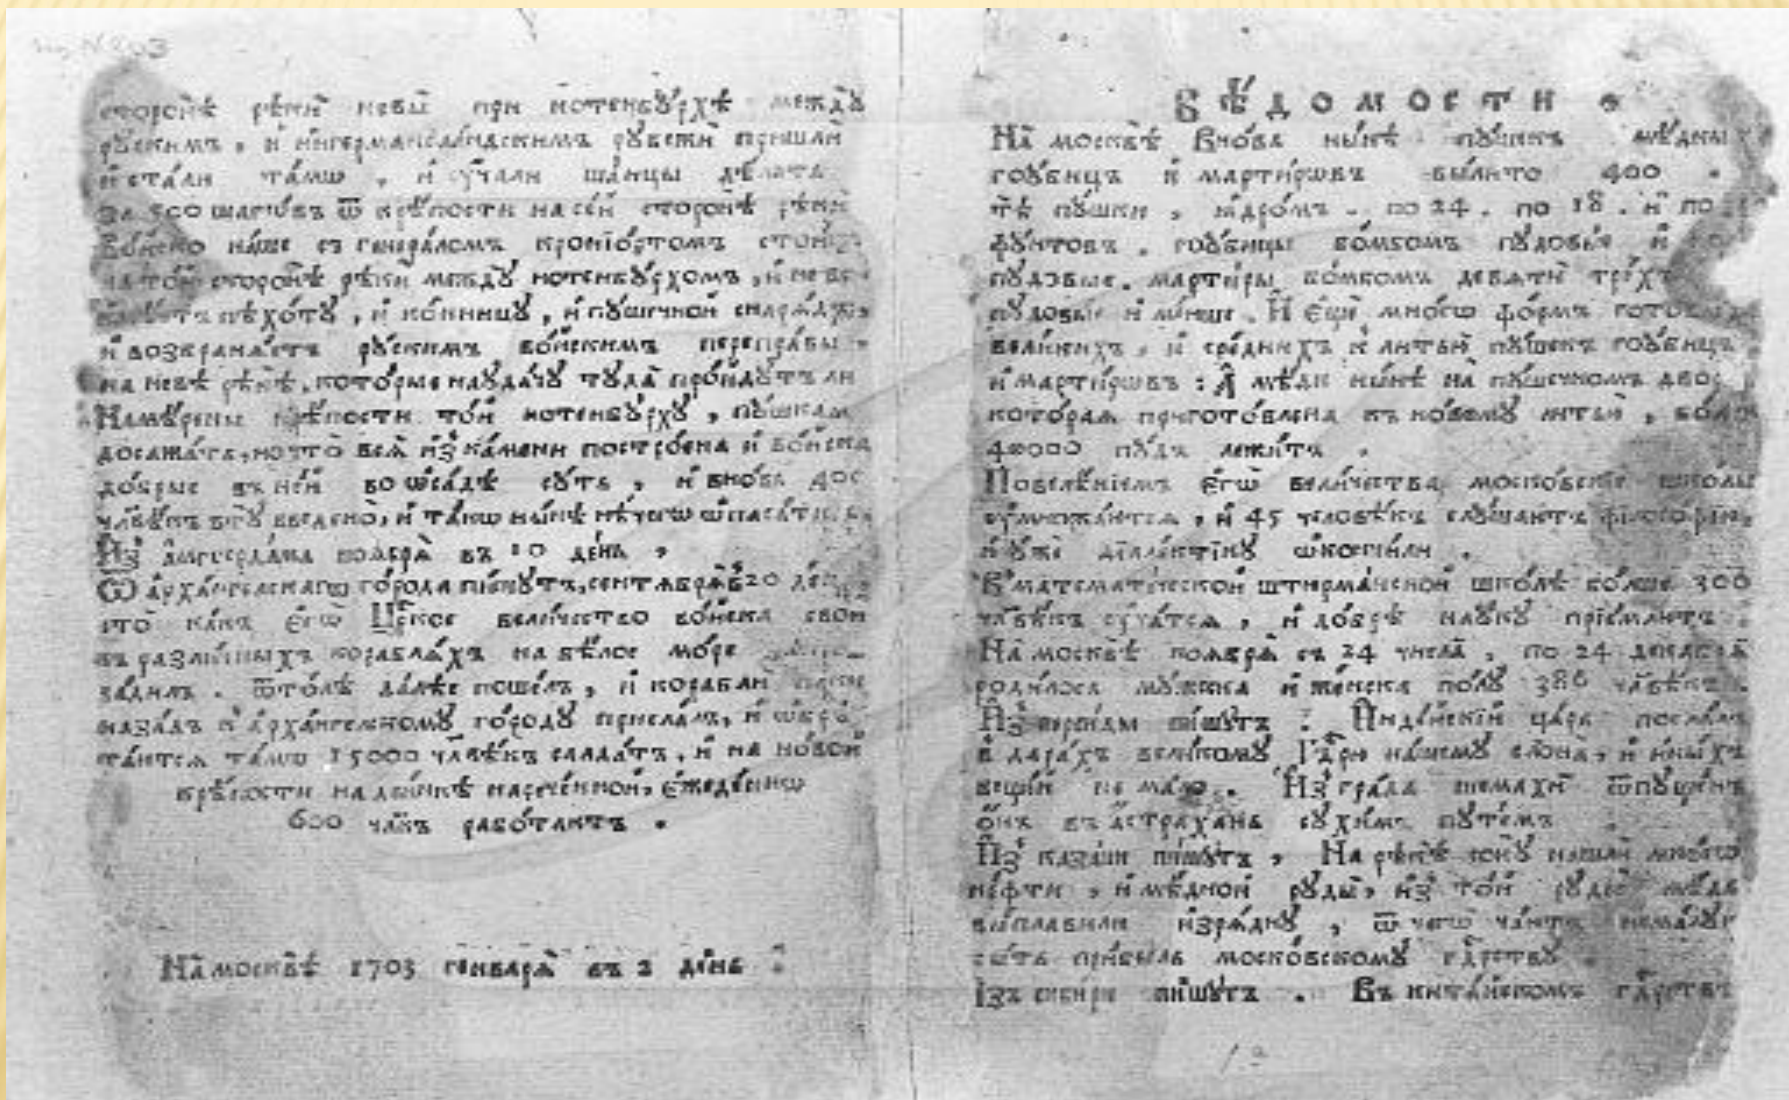 сторонѣ рѣки невы при нотенбꙋрхѣ междꙋ
рꙋскимъ, и ингерманландскимъ рꙋбежи пришли
и стали тамѡ, и ꙋчали шанцы дѣлать
за 500 шагѡвъ ѿ крѣпости на сей сторонѣ рѣки
Войско наше съ генераломъ кронїортомъ стоитъ
на той сторонѣ рѣки междꙋ нотенбꙋрхомъ, и
пѣхотꙋ, и конницꙋ, и пꙋшечной снарѧдъ,
и возбранѧетъ рꙋскимъ войскимъ переправы
на невѣ рѣкѣ, которые наꙋдачꙋ тꙋда пройдꙋтъ ли
Намѣрены крѣпости той нотенбꙋрхꙋ, пꙋшкам
досажать, но что всѧ из камени построена и войска
добрые въ ней во ѡсадѣ сꙋть, и вновь 400
члвѣкъ введено, и такѡ нынѣ нѣчегѡ ѡпасатисѧ
Из амстердама ноѧбрѧ въ 10 день,
Ѿ архангелскагѡ города пишꙋтъ, сентѧбрѧ въ 20 день
что какъ егѡ Црское величество войска свои
въ различныхъ кораблѧхъ на бѣлое море
задилъ. ѿтолѣ далѣе пошелъ, и корабли паки
назадъ к архангелномꙋ городꙋ прислалъ, и ѡбрѣ
таютсѧ тамѡ 15000 члвѣкъ салдатъ, и на новой
крѣпости на двинкѣ нареченной, ежеденнѡ
600 члкъ работаютъ.
На москвѣ 1703 генварѧ въ 2 день
ВѢДОМОСТИ.
На москвѣ вновь нынѣ пꙋшекъ мѣдныхъ
гоꙋбицъ и мартирѡвъ вылито 400.
тѣ пꙋшки, ѧдромъ. по 24. по 18. и по
фꙋнтовъ. гоꙋбицы бомбомъ пꙋдовые и
пꙋдовые. мартиры бомбомъ девѧти трехъ
пꙋдовые и менше. И еще многѡ формъ готовыхъ
великихъ, и среднихъ к литью пꙋшекъ гоꙋбицъ
и мартирѡвъ: А мѣди нынѣ на пꙋшечномъ дворѣ
котораѧ приготовлена къ новомꙋ литью, болше
40000 пꙋдъ лежитъ.
Повелѣнїемъ егѡ величества московскїе школы
ꙋмножаютсѧ, и 45 человѣкъ слꙋшаютъ философїю,
и ꙋже дїалектїкꙋ ѡкончили.
В математїческой штюрманской школѣ болше 300
члвѣкъ ꙋчатсѧ, и добрѣ наꙋкꙋ прїемлютъ.
На москвѣ ноѧбрѧ съ 24 числа, по 24 декабрѧ
родилось мꙋжска и женска полꙋ 386 члвѣкъ.
Из персиды пишꙋтъ: Индѣйскїй царь послалъ
в дарахъ великомꙋ Гдрю нашемꙋ слона, и иныхъ
вещей не мало. Из града шемахи ѿпꙋщенъ
онъ въ астрахань сꙋхимъ пꙋтемъ
Из казани пишꙋтъ, На рѣкѣ сокꙋ нашли многѡ
нефти, и мѣдной рꙋды, из той рꙋды мѣдь
выплавили изрѧднꙋ, ѿ чегѡ чаютъ немалꙋю
быть прибыль московскомꙋ гдрствꙋ.
Изъ сибири пишꙋтъ. Въ китайскомъ гдрствѣ